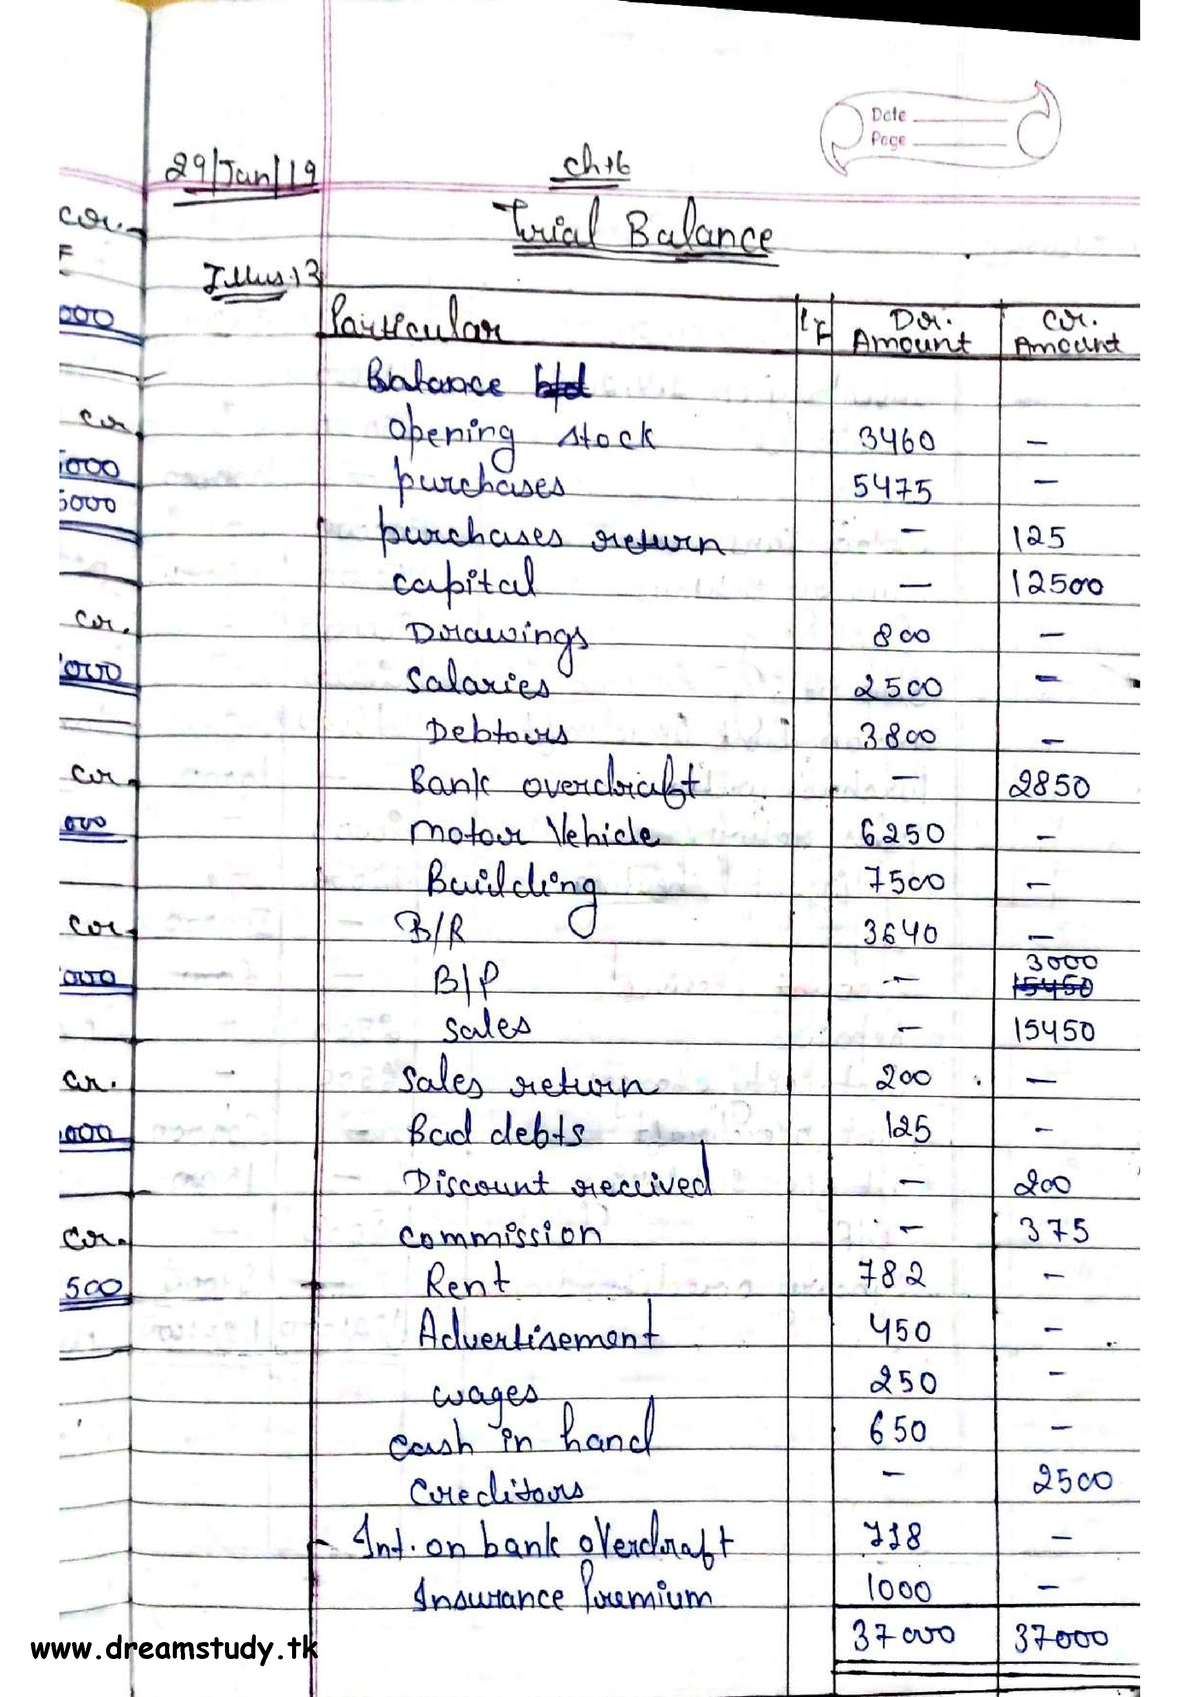 Date
Page
29/Jan/19
Ch→6
Trial Balance
Illus:13
Particular L.F Dr. Amount Cr. Amount
Balance b/d
opening stock 3460 —
purchases 5475 —
purchases return — 125
capital — 12500
Drawings 800 —
Salaries 2500 —
Debtors 3800 —
Bank overdraft — 2850
motor Vehicle 6250 —
Building 7500 —
B/R 3640 —
B/P — 3000
15450
Sales — 15450
Sales return 200 —
Bad debts 125 —
Discount received — 200
commission — 375
Rent 782 —
Advertisement 450 —
wages 250 —
cash in hand 650 —
Creditors — 2500
Int. on bank overdraft 118 —
Insurance Premium 1000 —
37000 37000
cr.
F
000
cr
5000
5000
cr.
000
cr
000
cr
000
cr.
000
cr.
500
www.dreamstudy.tk